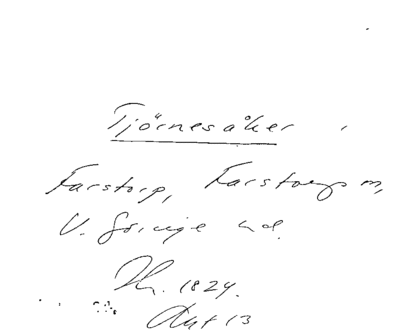 Tjörnesåker
Farstorp, Farstorps sn,
V. Göinge hd.
Thr. 1824.
Akt 13